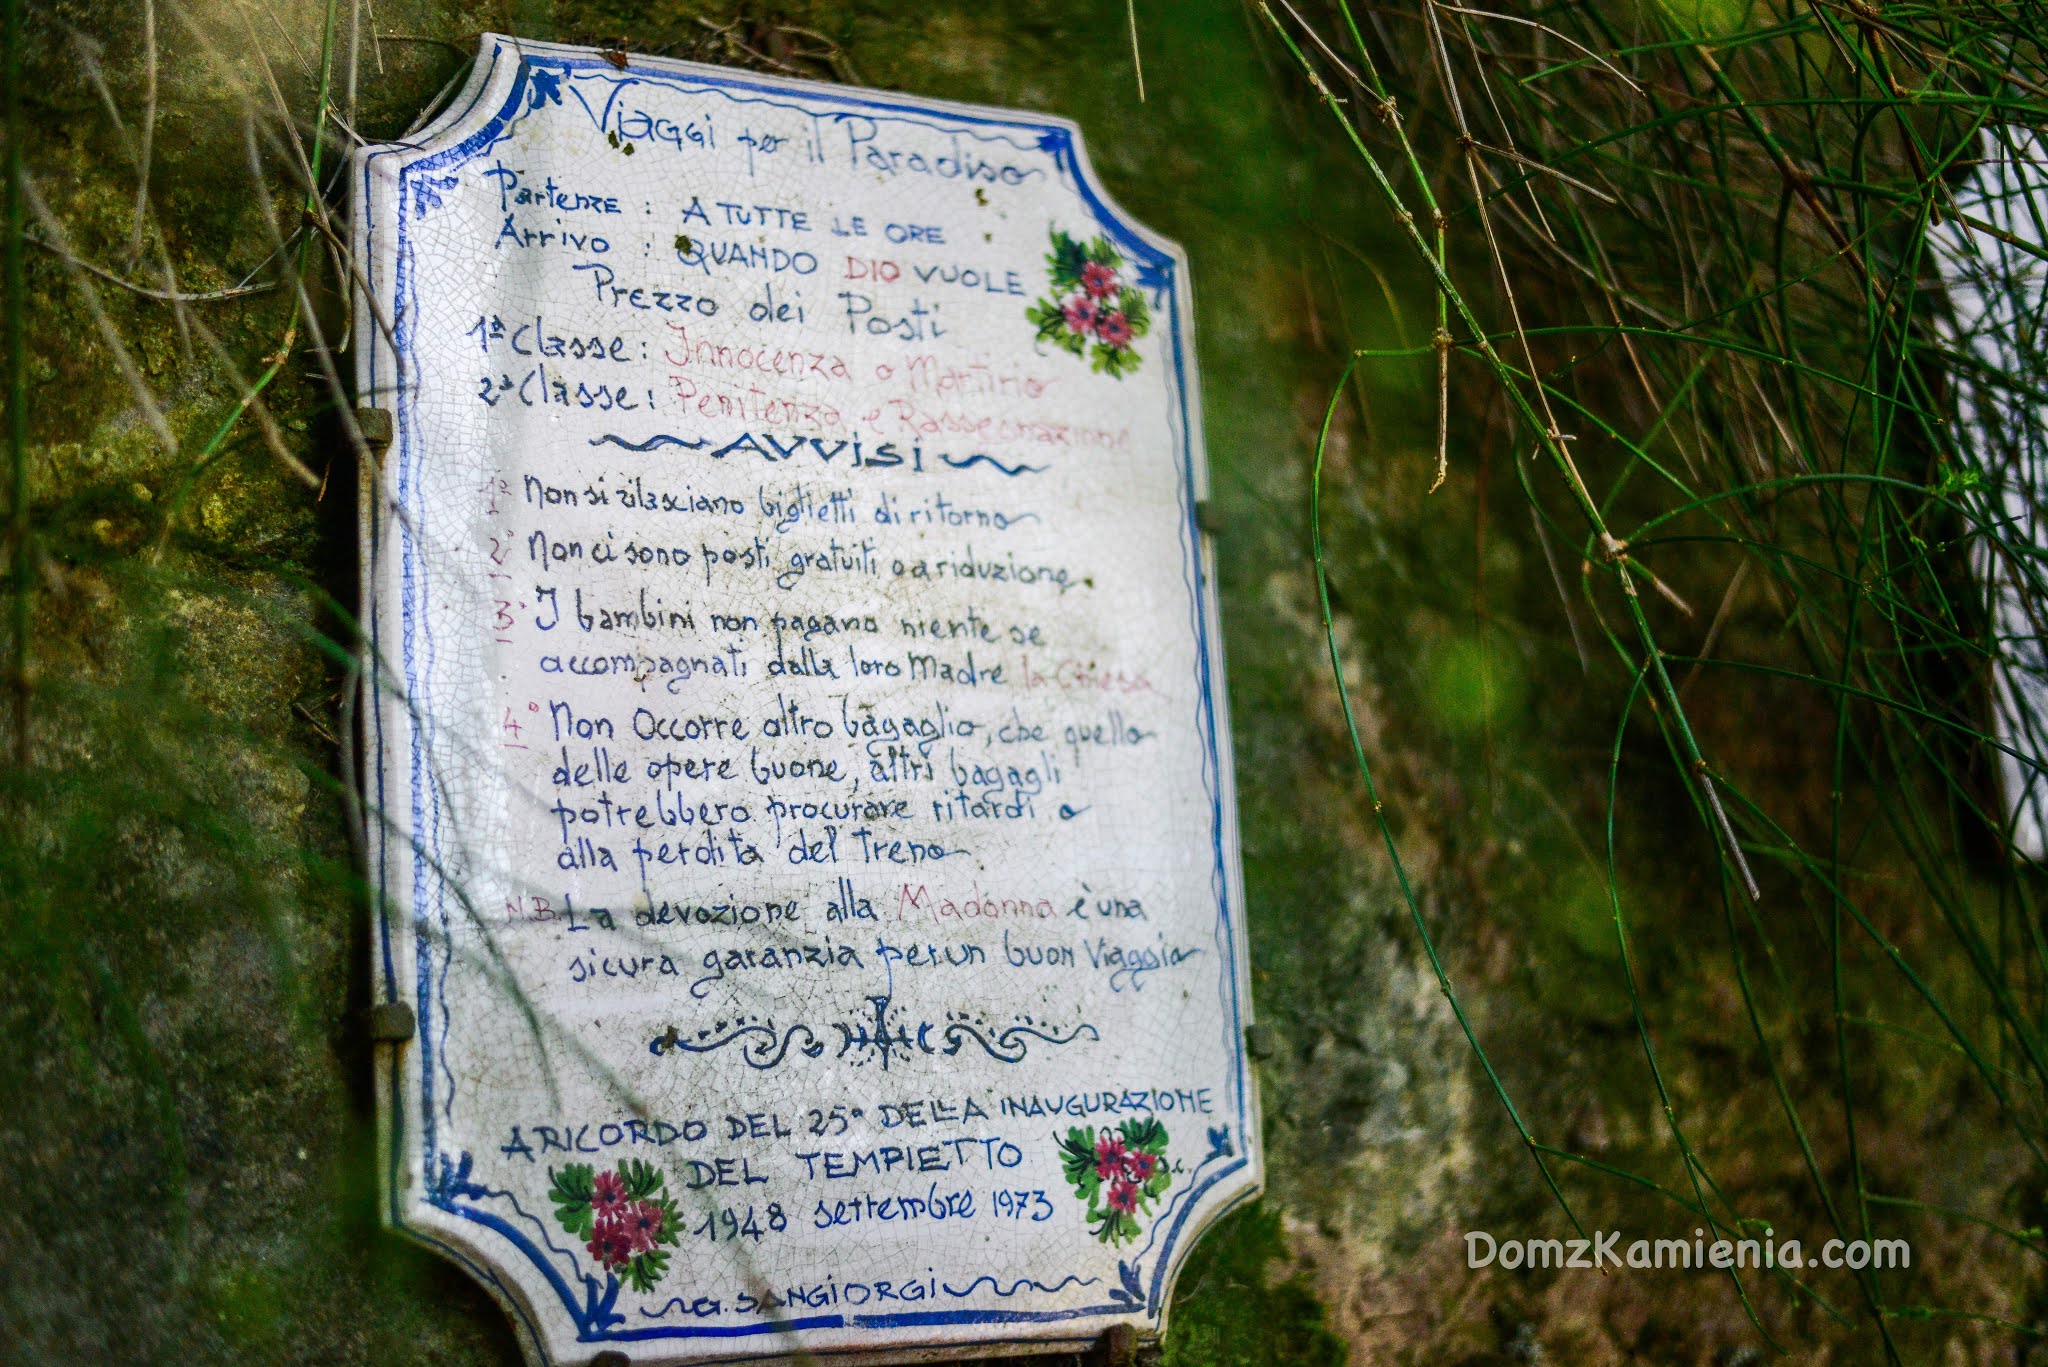 Viaggi per il Paradiso
Partenze : A TUTTE LE ORE
Arrivo : QUANDO DIO VUOLE
Prezzo dei Posti
1ª Classe: Innocenza o Martirio
2ª Classe: Penitenza e Rassegnazione
AVVISI
1° Non si rilasciano biglietti di ritorno
2° Non ci sono posti gratuiti o a riduzione
3° I bambini non pagano niente se
accompagnati dalla loro Madre la Chiesa
4° Non Occorre altro bagaglio, che quello
delle opere buone, altri bagagli
potrebbero procurare ritardi o
alla perdita del Treno
N.B. La devozione alla Madonna è una
sicura garanzia per un buon Viaggio
A RICORDO DEL 25° DELLA INAUGURAZIONE
DEL TEMPIETTO
1948 settembre 1973
G. SANGIORGI
DomzKamienia.com